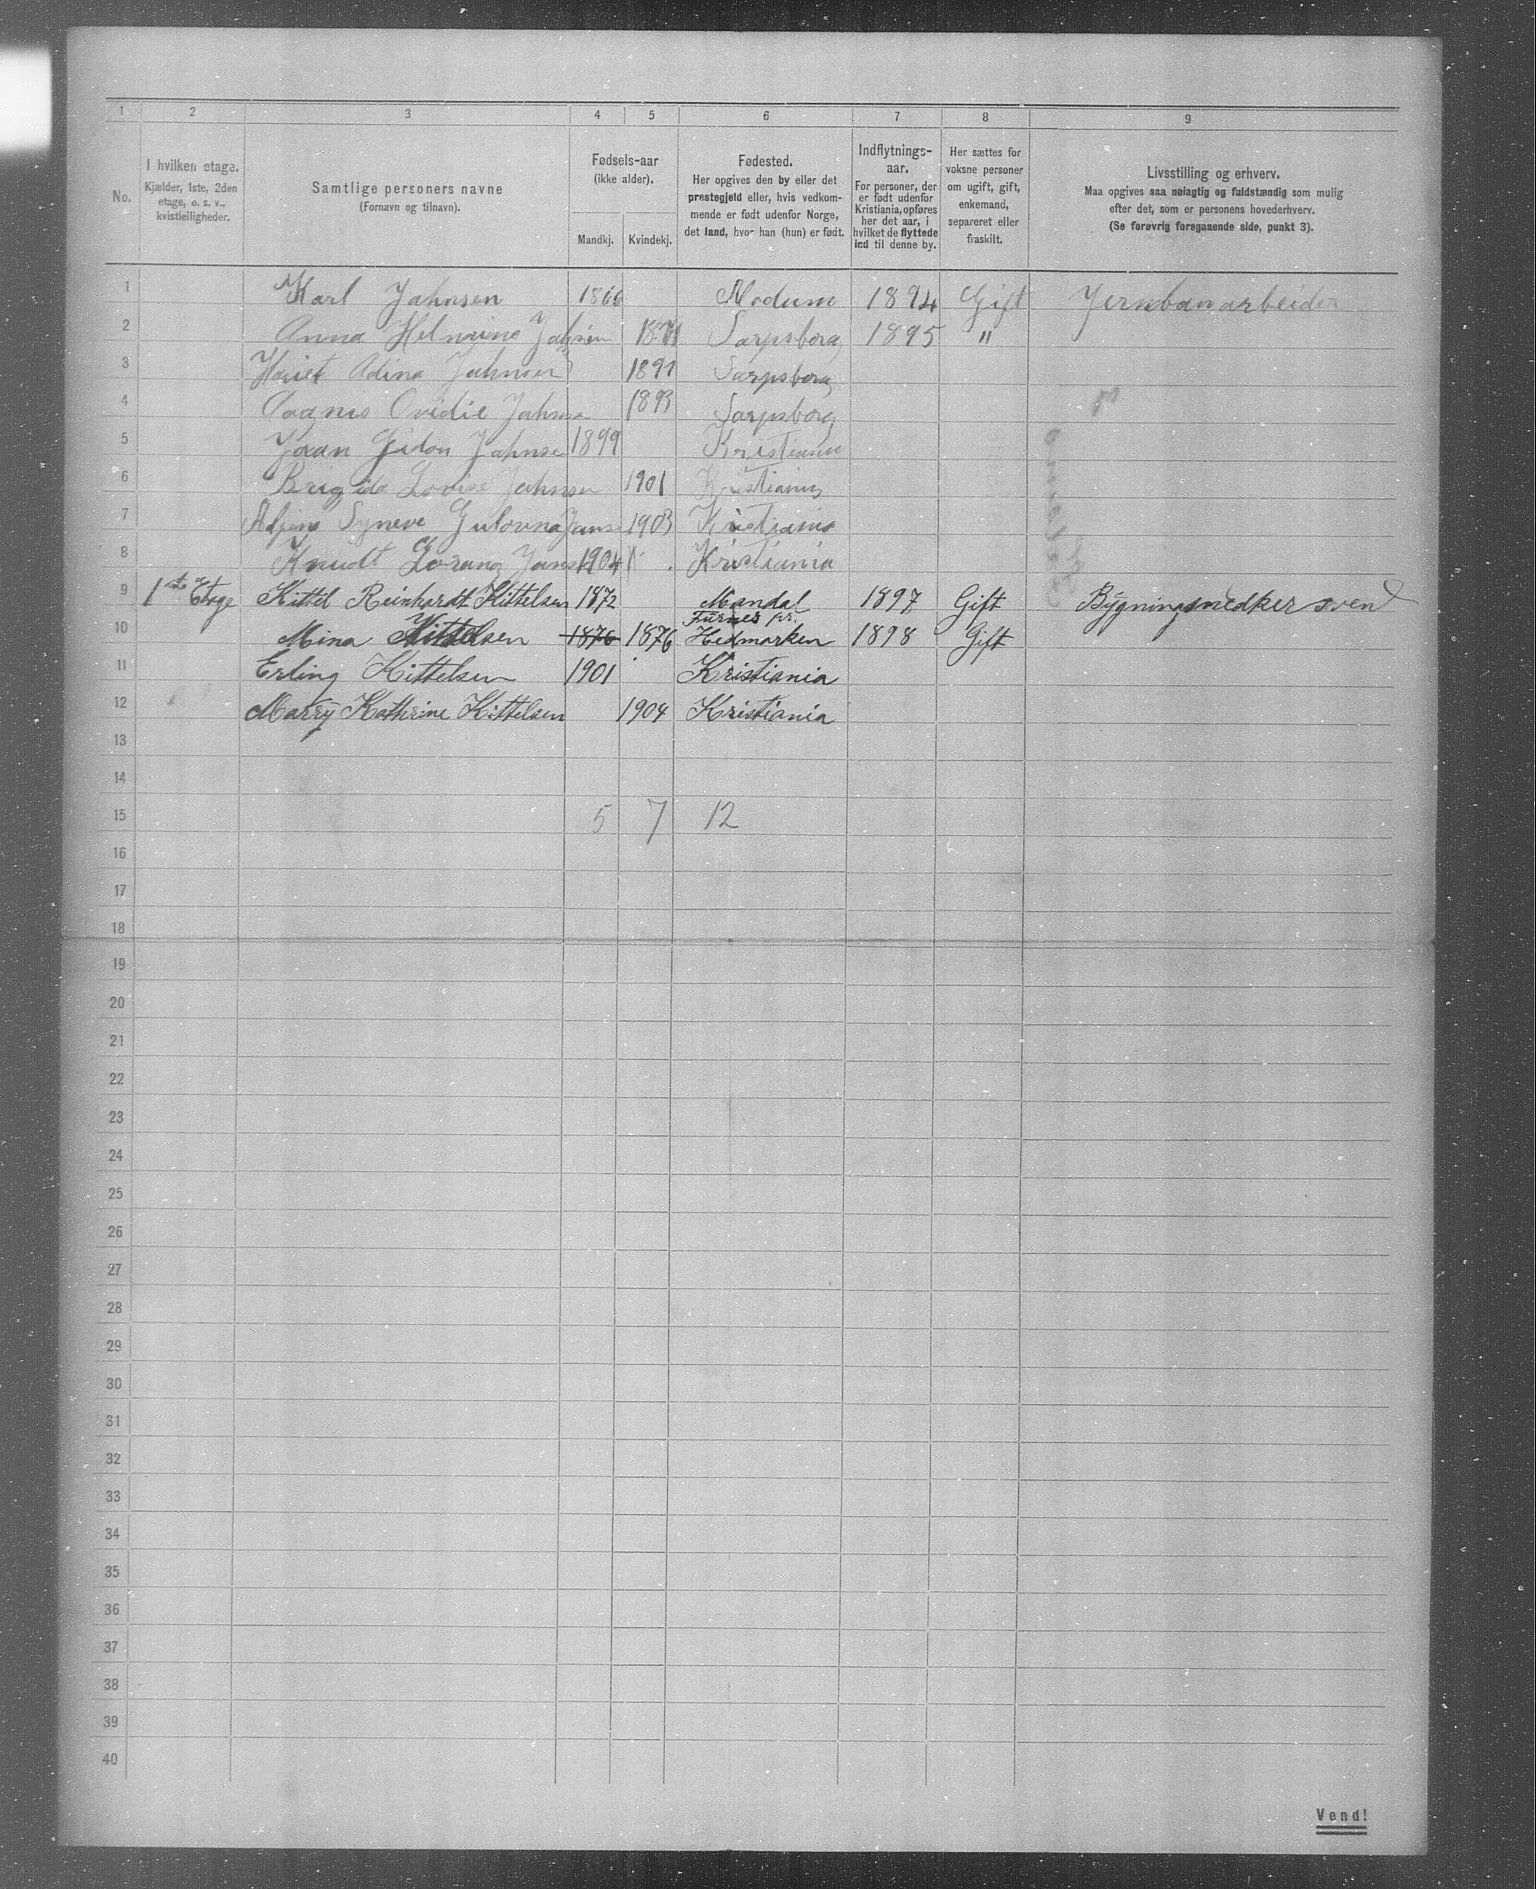 1 2 3 4 5 6 7 8 9
No.
I hvilken etage.
Kjælder, 1ste, 2den
etage, o. s. v.,
kvistleiligheder.
Samtlige personers navne
(Fornavn og tilnavn).
Fødsels-aar
(ikke alder).
Mandkj. Kvindekj.
Fødested.
Her opgives den by eller det
prestegjeld eller, hvis vedkom-
mende er født udenfor Norge,
det land, hvor han (hun) er født.
Indflytnings-
aar.
For personer, der
er født udenfor
Kristiania, opføres
her det aar, i
hvilket de flyttede
ind til denne by.
Her sættes for
voksne personer
om ugift, gift,
enkemand,
separeret eller
fraskilt.
Livsstilling og erhverv.
Maa opgives saa nøiagtig og fuldstændig som mulig
efter det, som er personens hovederhverv.
(Se forøvrig foregaaende side, punkt 3).
1 Karl Jahnsen 1866 Modum 1894 Gift Jernbanarbeider
2 Anna Helmine Jahnsen 1871 Sarpsborg 1895 "
3 Adina Jahnsen 1891 Sarpsborg
4 Aagnes Ovidie Jahnse 1893 Sarpsborg
5 Johan Gidon Jahnse 1899 Kristiania
6 Brigide Lovise Jahnsen 1901 Kristiania
7 Syneve Jans 1903 Kristiania
8 Knudt Lorang Jans 1904 Kristiania
9 1ste Etage Kittel Reinhardt Kittelsen 1872 Mandal 1897 Gift Bygningsnedker sven
Furnes pr.
10 Mina Kittelsen 1876 1876 Hedmarken 1898 Gift
11 Erling Kittelsen 1901 Kristiania
12 Marry Kathrine Kittelsen 1904 Kristiania
13
14
15 5 7 12
16
17
18
19
20
21
22
23
24
25
26
27
28
29
30
31
32
33
34
35
36
37
38
39
40
Vend!